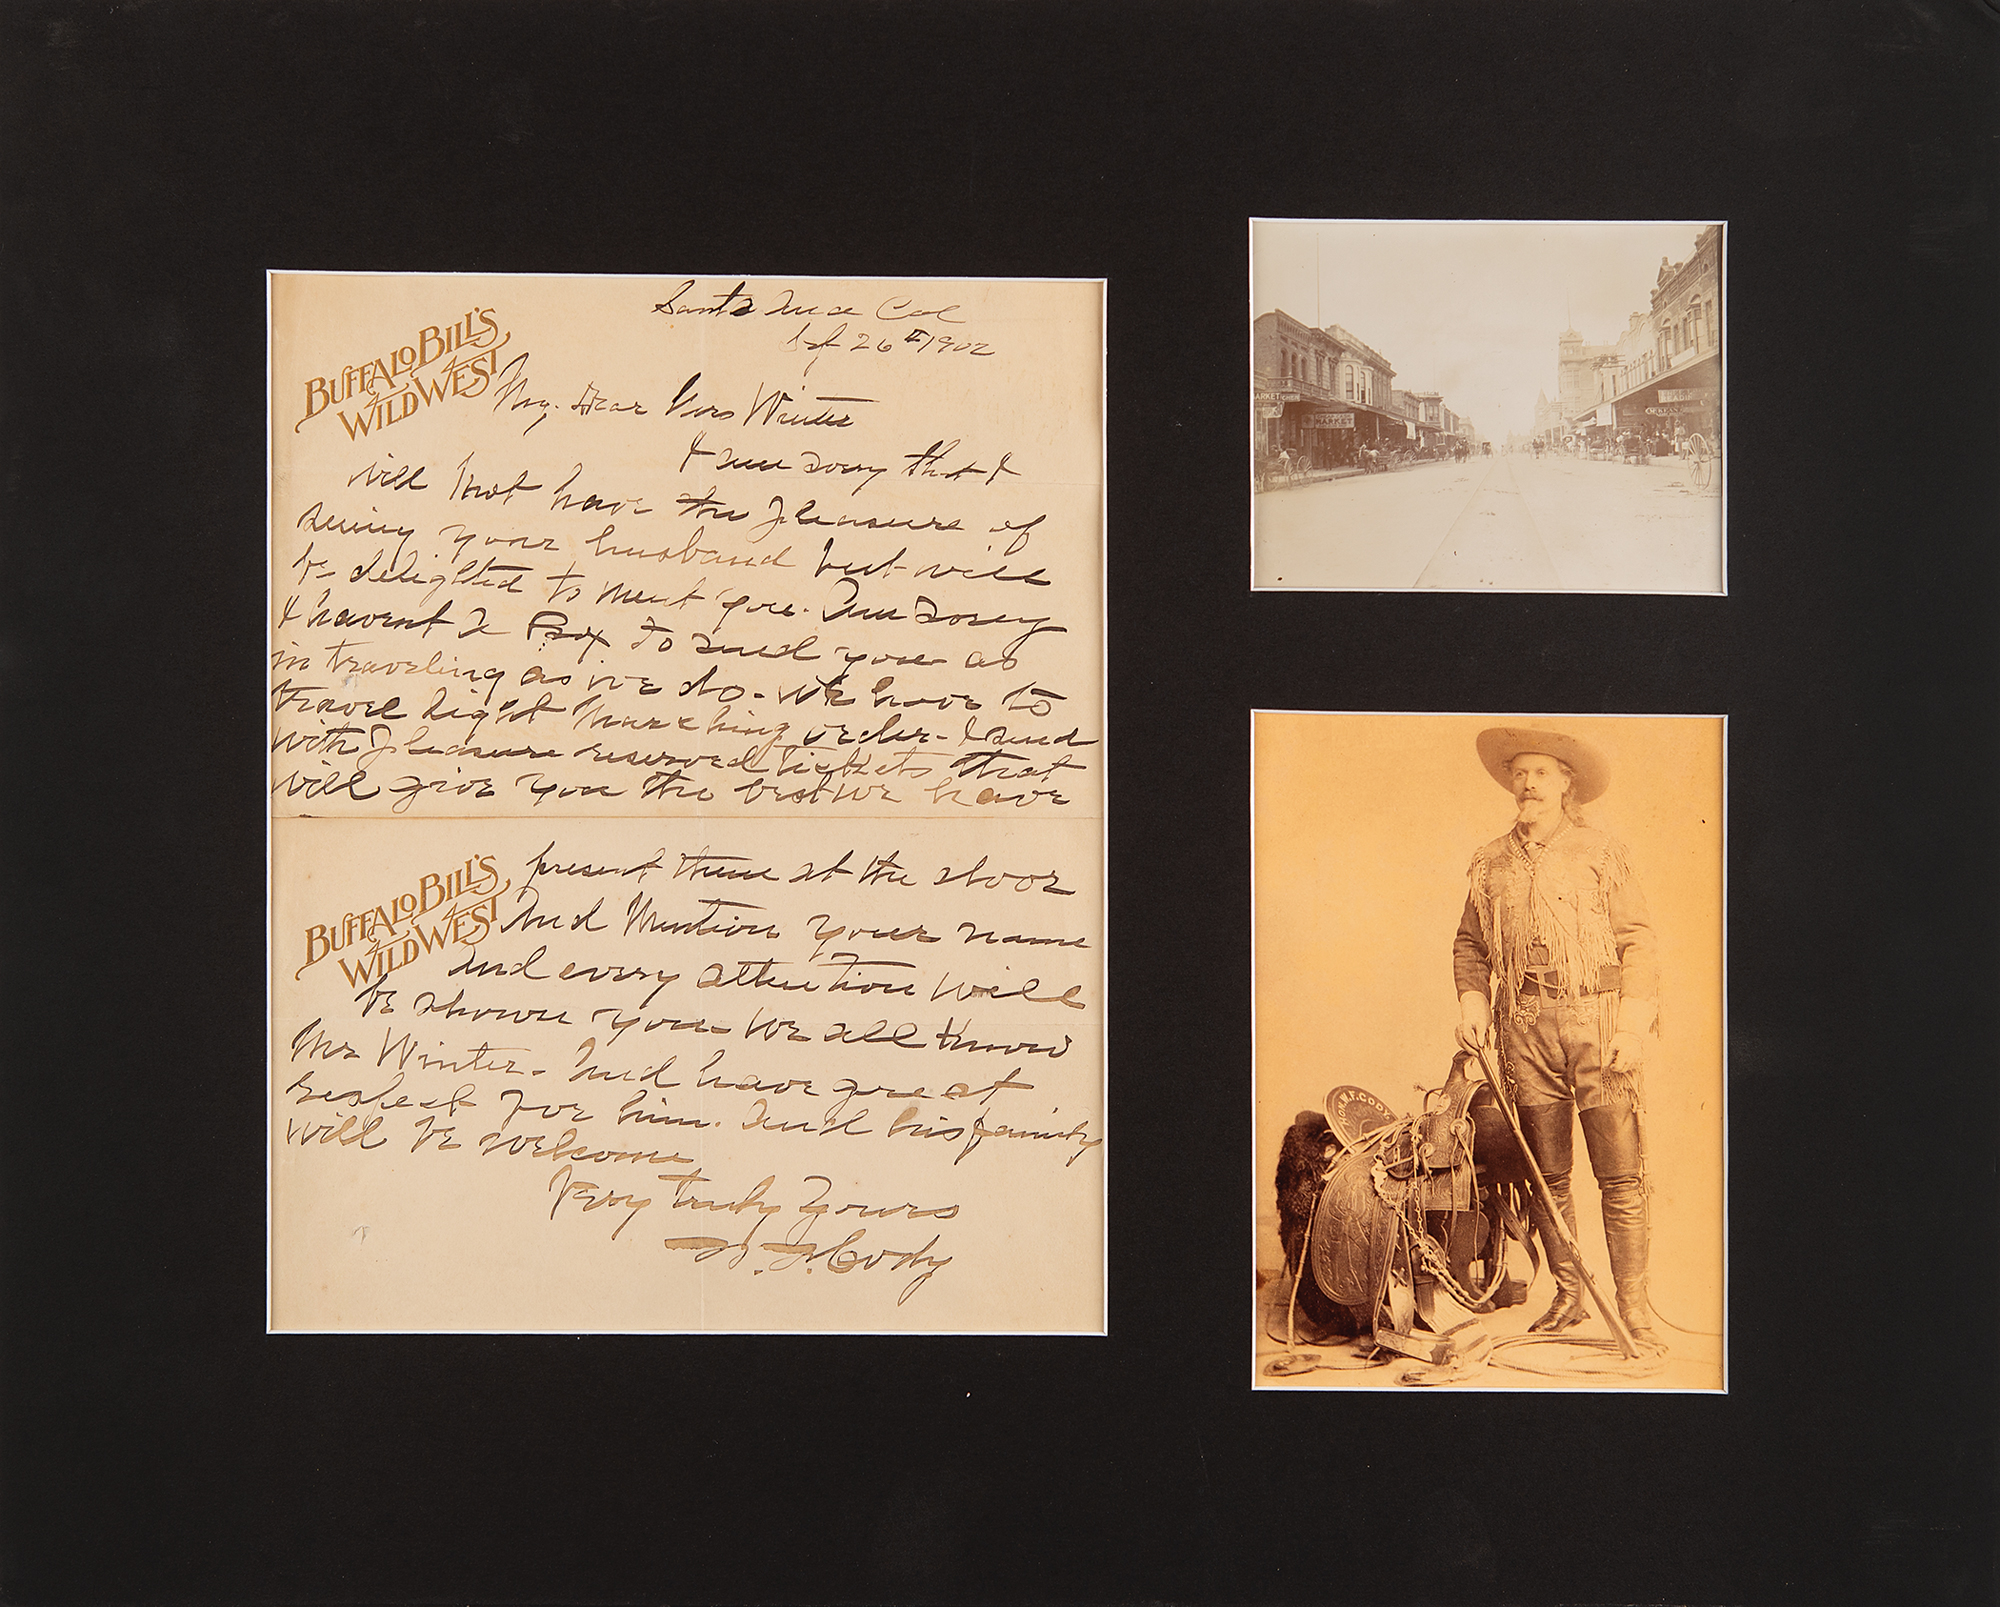 BUFFALO BILL'S
WILD WEST
Santa Ana Cal
Sep 26th 1902
My Dear Mrs Winter
I am sorry that I
will not have the pleasure of
seeing your husband but will
be delighted to meet you. Am sorry
I havent a Box to send you as
in traveling as we do. We have to
travel light marching order. I send
with pleasure reserved tickets that
will give you the best we have
BUFFALO BILL'S
WILD WEST
present them at the door
And Mention your name
And every attention will
be shown you. We all know
Mr Winter. And have great
respect for him. And his family
will be welcome
Very truly Yours
W. F. Cody
MARKET
MARKET
HON. W. F. CODY